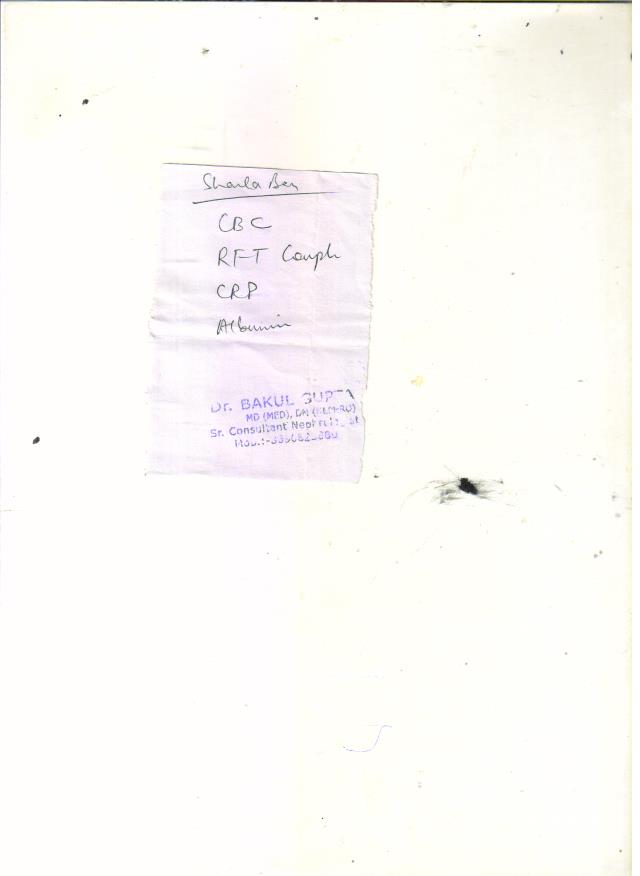 Sharla Ben
CBC
RFT Comple
CRP
Albumin
Dr. BAKUL GUPTA
MD (MED), DM (NEPHRO)
Sr. Consultant Nephrologist
Mob.:-